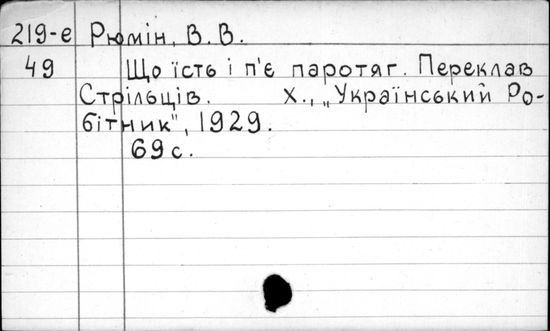 219-е Рюмін, В.В.
49 Що їсть і п'є паротяг. Переклав
Стрільців. Х., „Український Ро-
бітник", 1929.
69 с.